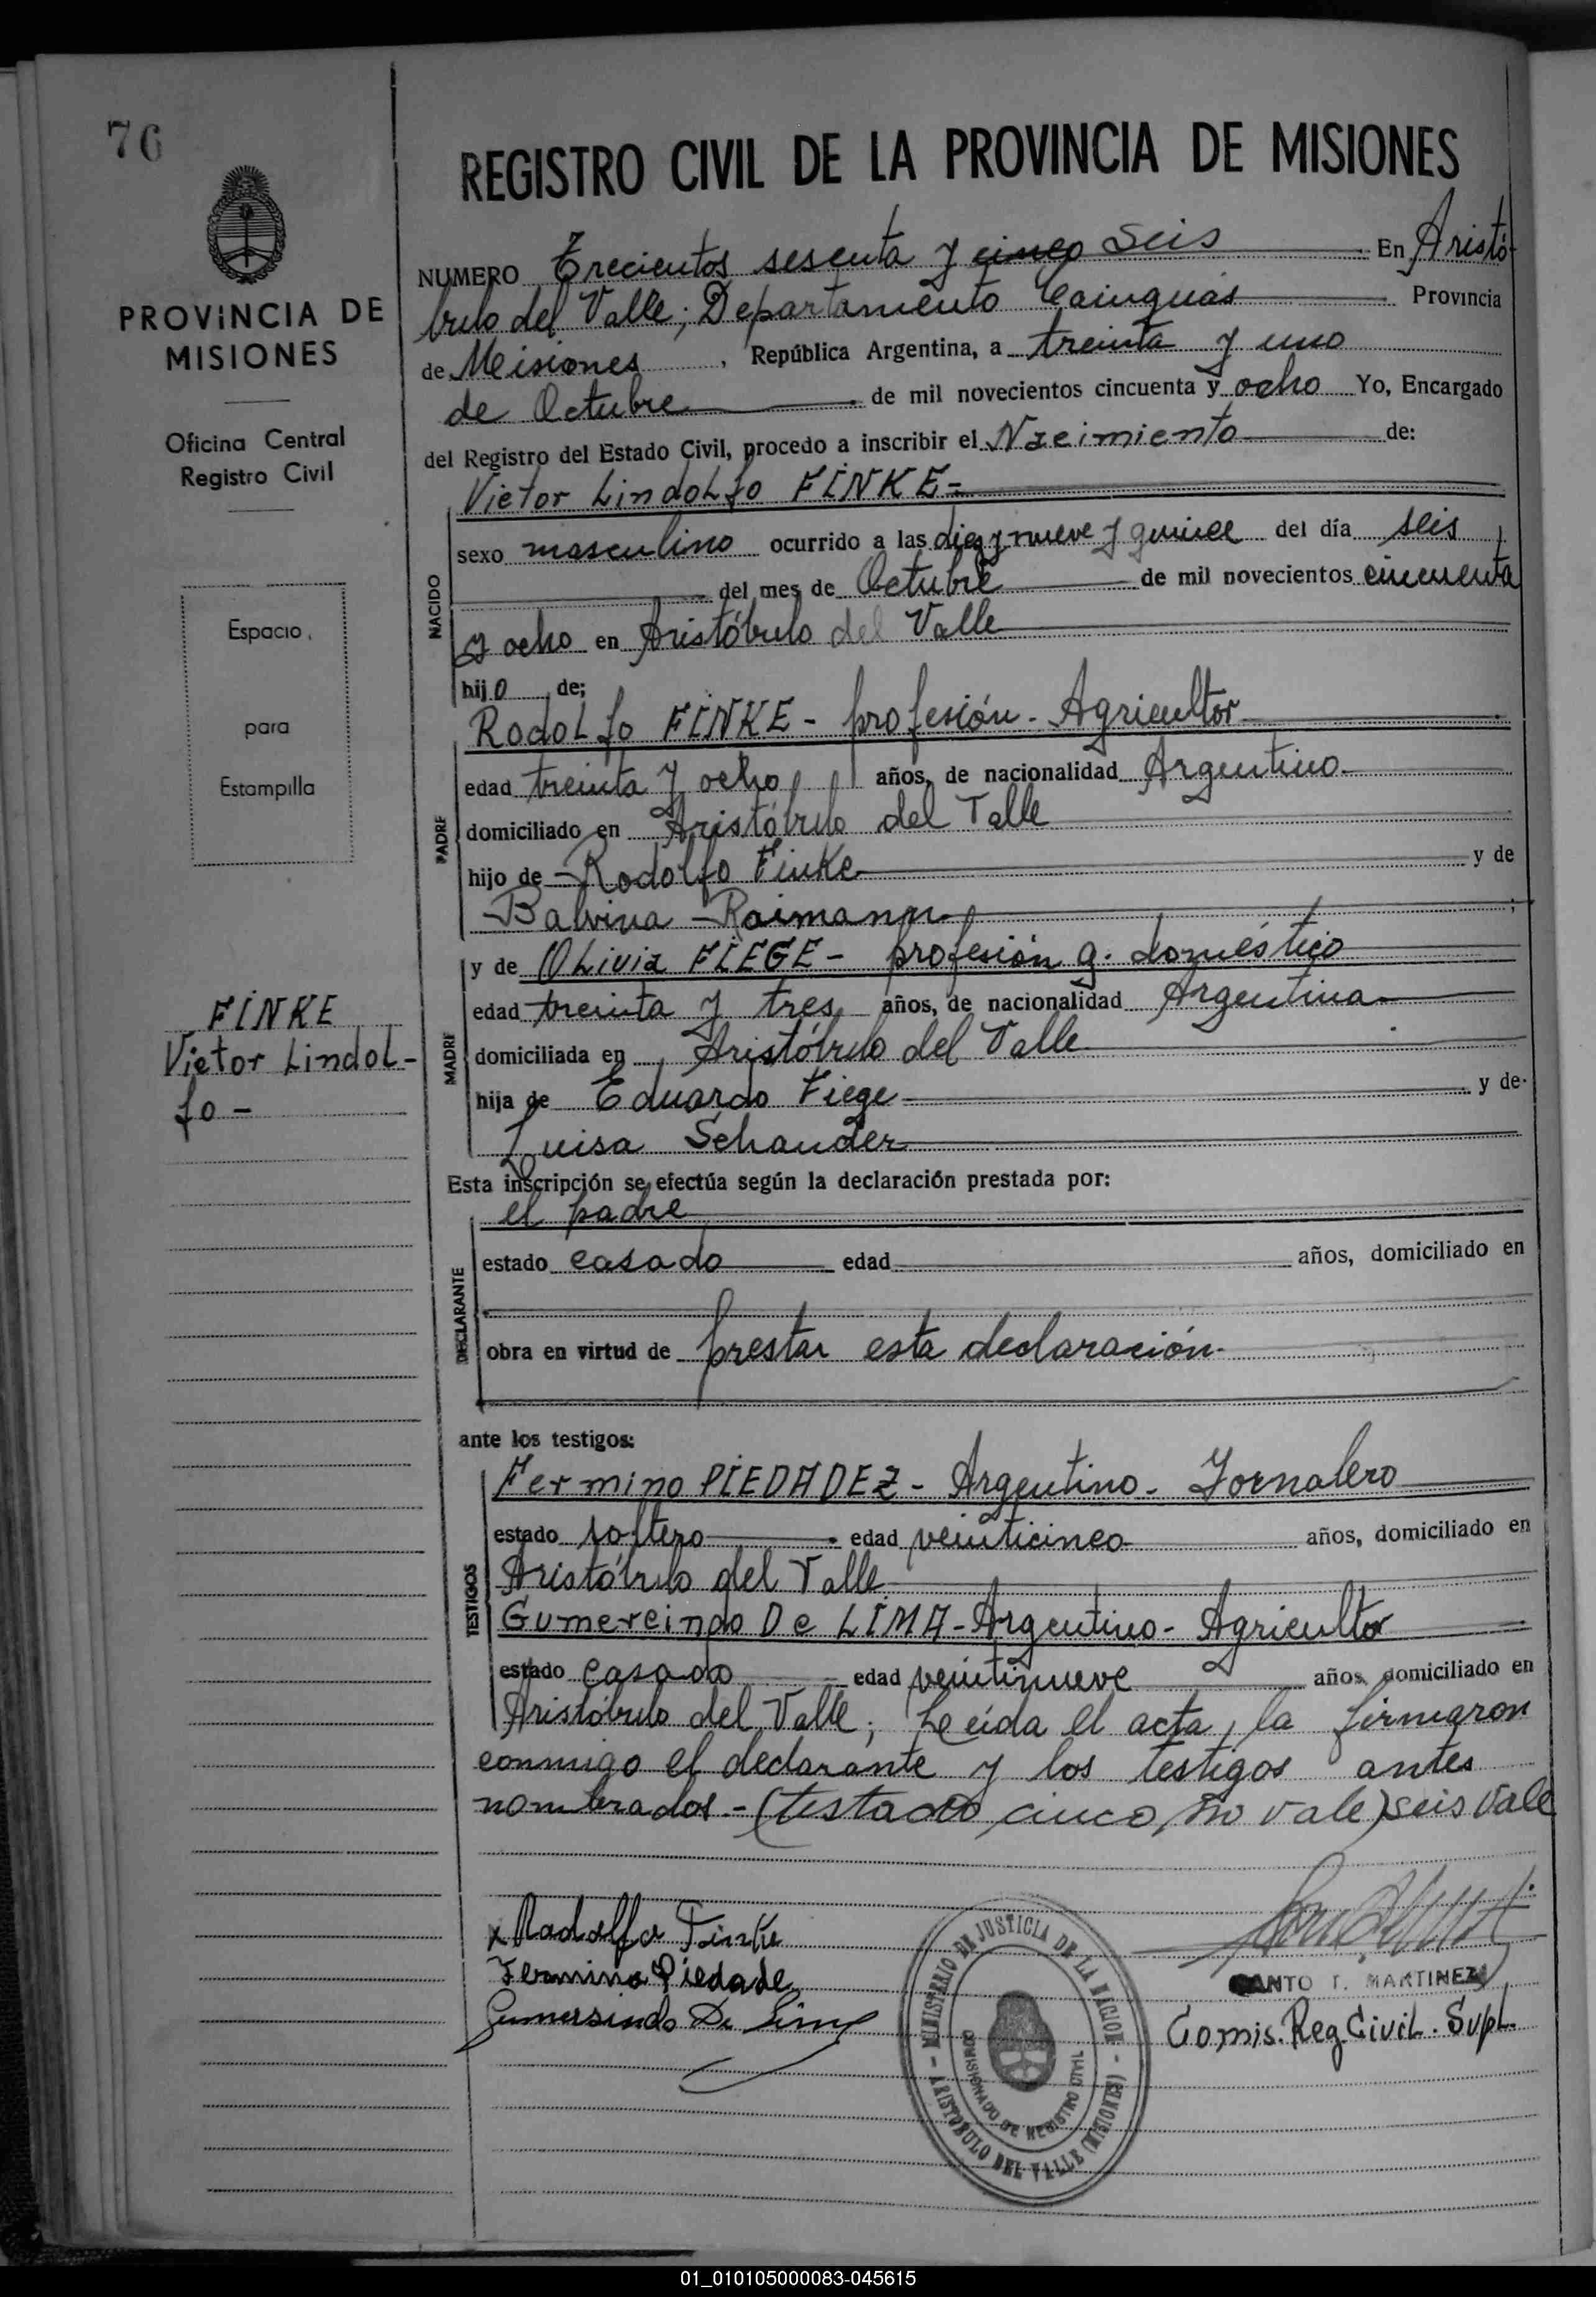 76
PROVINCIA DE
MISIONES
Oficina Central
Registro Civil
Espacio
para
Estampilla
FINKE
Victor Lindol-
fo -
REGISTRO CIVIL DE LA PROVINCIA DE MISIONES
NUMERO Trecientos sesenta y cinco seis En Aristó-
bulo del Valle; Departamento Cainguás Provincia
de Misiones, República Argentina, a treinta y uno
de Octubre de mil novecientos cincuenta y ocho Yo, Encargado
del Registro del Estado Civil, procedo a inscribir el Nacimiento de:
Victor Lindolfo FINKE-
NACIDO
sexo masculino ocurrido a las diez y nueve y quince del día seis
del mes de Octubre de mil novecientos cincuenta
y ocho en Aristóbulo del Valle
hijo de;
PADRE
Rodolfo FINKE - profesión - Agricultor
edad treinta y ocho años, de nacionalidad Argentino
domiciliado en Aristóbulo del Valle
hijo de Rodolfo Finke y de
Balvina Raimann
MADRE
y de Olivia FIEGE - profesión q. doméstico
edad treinta y tres años, de nacionalidad Argentina
domiciliada en Aristóbulo del Valle
hija de Eduardo Fiege y de
Luisa Schander
Esta inscripción se efectúa según la declaración prestada por:
DECLARANTE
el padre
estado casado edad años, domiciliado en
obra en virtud de prestar esta declaración
ante los testigos:
TESTIGOS
Fermino PIEDADEZ - Argentino - Jornalero
estado soltero edad veinticinco años, domiciliado en
Aristóbulo del Valle
Gumercindo De LIMA - Argentino - Agricultor
estado casado edad veintinueve años, domiciliado en
Aristóbulo del Valle; Leída el acta, la firmaron
conmigo el declarante y los testigos antes
nombrados - (testado cinco, no vale) seis vale
x Radolfo Finke
Fermino Piedade
Gumersindo De Lima
MINISTERIO DE JUSTICIA DE LA NACION - ARISTOBULO DEL VALLE (MISIONES) -
COMISIONADO DE REGISTRO CIVIL
SANTO T. MARTINEZ
Comis. Reg. Civil. Supl.
01_010105000083-045615